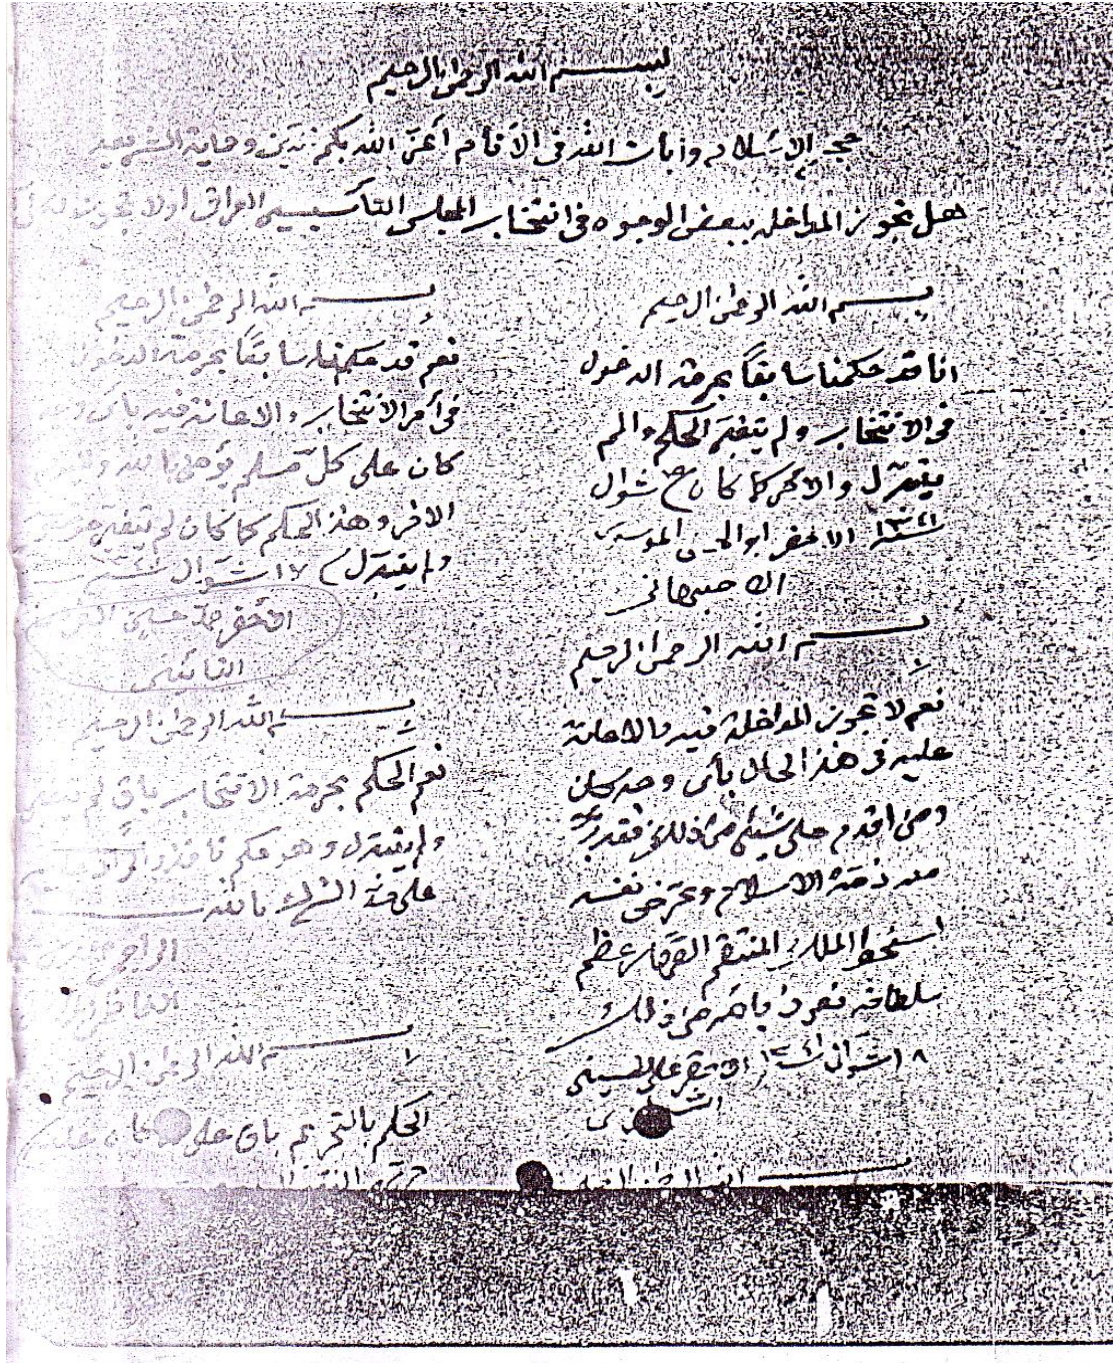 بسم الله الرحمن الرحيم
حجج الإسلام وآيات الله في الأنام أعز الله بكم الدين وحماية الشريعة
هل تجوز المداخلة ببعض الوجوه في انتخاب المجلس التأسيسي العراقي أولا تجوز
بسم الله الرحمن الرحيم
انا قد حكمنا سابقاً بحرمة الدخول
في الانتخاب ولم يتغير الحكم ولم
يتبدل والأمر كما كان شوال
١٣٤١ الاحقر ابو الحسن الموسوي
الاصبهاني
بسم الله الرحمن الرحيم
نعم لا تجوز المداخلة فيه والاعانة
عليه في هذا الحال بأي وجه كان
ومن اقدم على شيء من ذلك فقد برئت
منه ذمة الاسلام وعرض نفسه
لسخط الملك المنتقم القهار عظم
سلطانه نعوذ بالله من ذلك
١٨ شوال ١٣٤١ الاحقر علي الحسيني
بسم الله الرحمن الرحيم
نعم قد حكمنا سابقاً بحرمة الدخول
في أمر الانتخاب والاعانة فيه بأي وجه
كان على كل مسلم يؤمن بالله
الاخر وهذا الحكم كما كان لم يتغير
ولم يتبدل ١٧ شوال
الاحقر محمد حسين
النائيني
بسم الله الرحمن الرحيم
نعم الحكم بحرمة الانتخاب باقٍ لم
ولم يتبدل وهو حكم نافذ
على حد الشرك بالله
الراجي
بسم الله الرحمن الرحيم
الحكم بالتحريم باق على كان عليه